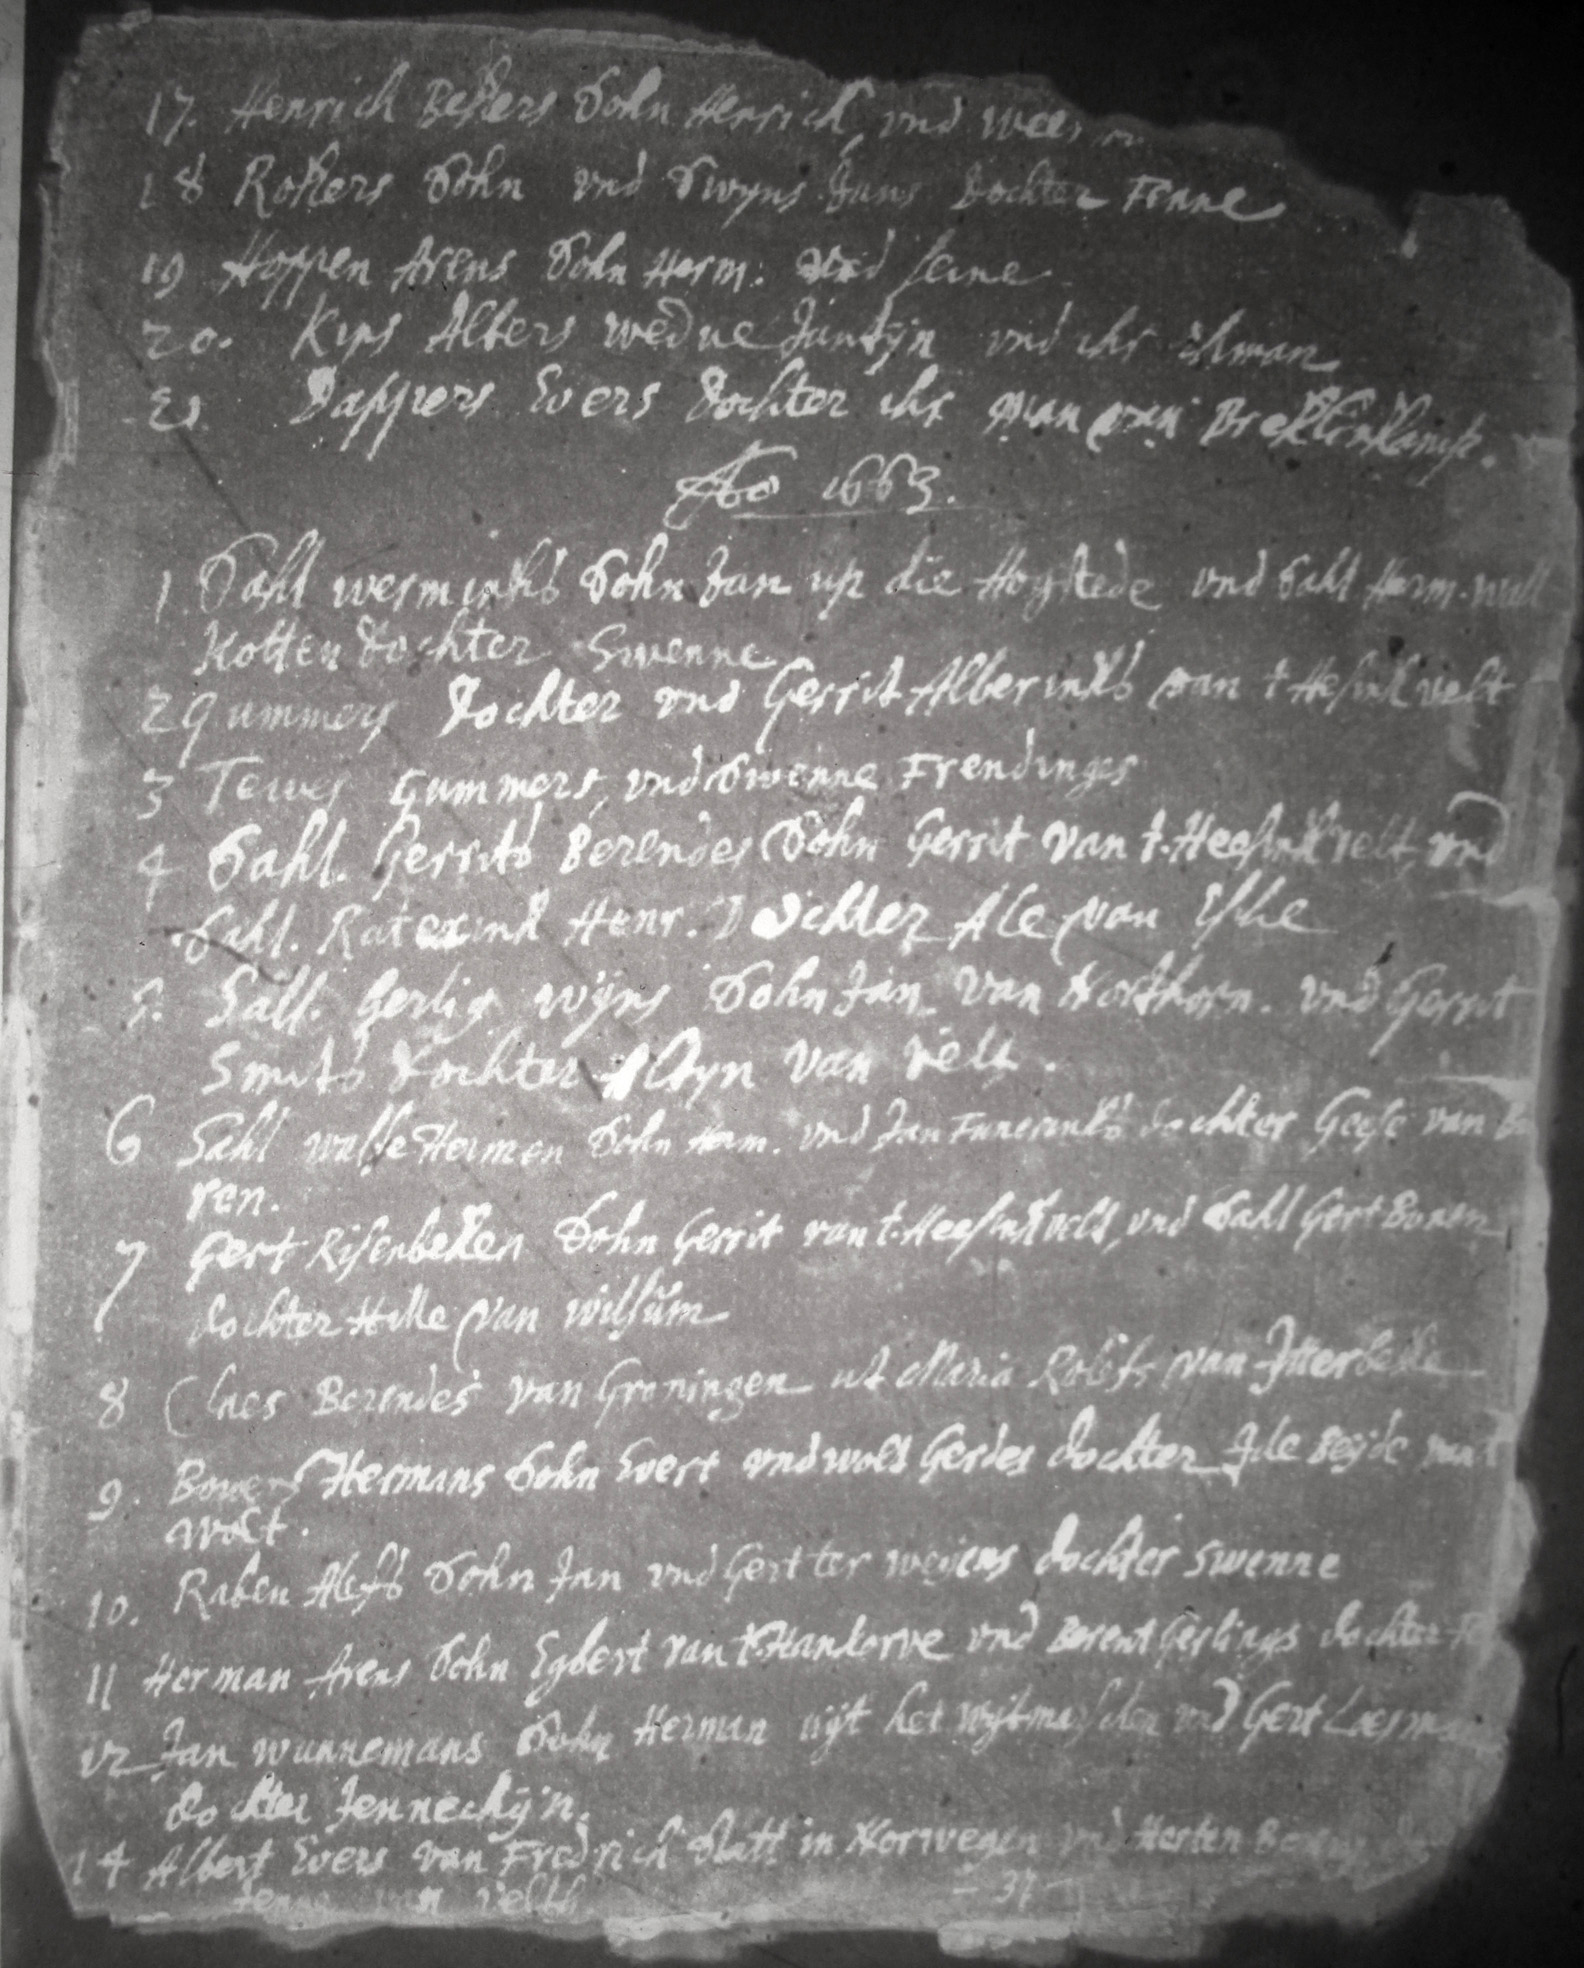 17. Henrich Bekers Sohn Henrich, und
18 Rokers Sohn und Swyns Jans Dochter Fenne
19 Hoppen Arens Sohn Herm: und seine
20. Kips Albers wedue Jantyn und ihr ehman
21 Dappers Evers dochter ihr man van Breklenkamp.
Ao 1663.
1. Sahl werminks Sohn Jan up die Hogstede und Sahl Herm.
Kotten dochter Swenne
2 Gummers Dochter und Gerrit Alberinks van t Hesinkvelt
3 Tewes Gummers, und Swenne Frendinges
4 Sahl. Gerrits Berendes Sohn Gerrit van t. Heesinkvelt, und
Sahl. Raterink Henr. Dochter Ale van Esche
5. Sall. Gerlig wijns Sohn Jan van Northorn. und Gerrit
Smits dochter van velt.
6 Sahl wulfe Hermen Sohn Herm. und Jan Funerinks dochter Geese van
ren.
7 Gert Risenbeken Sohn Gerrit van t. Heesinkvelt, und Sahl Gert Bonen
dochter Hille van wilsum
8 Claes Berendes van Groningen ut Maria Rolefs van Itterbeke
9. Hermans Sohn Evert und wolt Gerdes dochter Jde Beyde van t
wolt.
10. Raben Alefs Sohn Jan und Gert ter weyens dochter Swenne
11 Herman Arens Sohn Egbert van t. Hankorve und Berent Gerlings dochter
12 Jan wunnemans Sohn Herman uijt het wytmarschen und Gert
dochter Jennechijn.
14 Albert Evers van Fredrich Statt in Norwegen und Hersten
van velth
- 37 -